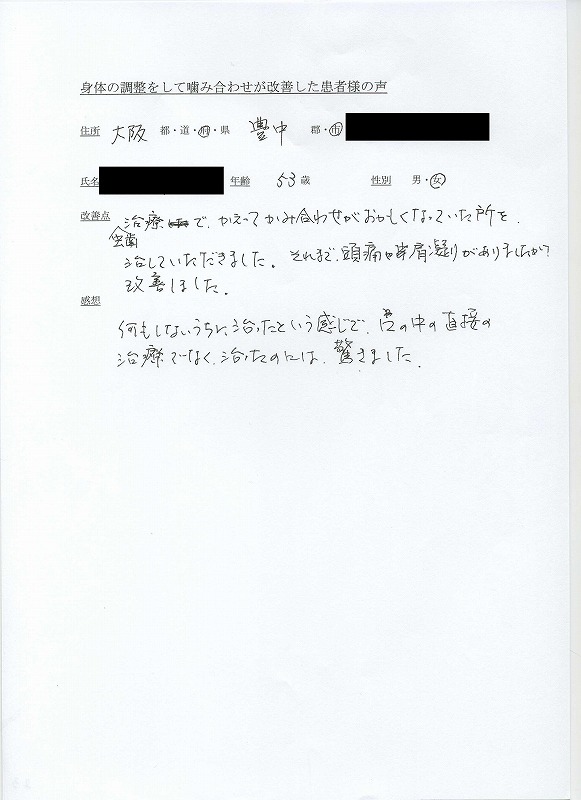 身体の調整をして噛み合わせが改善した患者様の声
住所 大阪 都・道・府・県 豊中 郡・市
氏名 年齢 53歳 性別 男・女
改善点 虫歯治療で、かえってかみ合わせがおかしくなっていた所を、
治していただきました。それまで、頭痛や肩凝りがありましたが
改善しました。
感想
何もしないうちに治ったという感じで、口の中の直接の
治療でなく、治ったのには、驚きました。